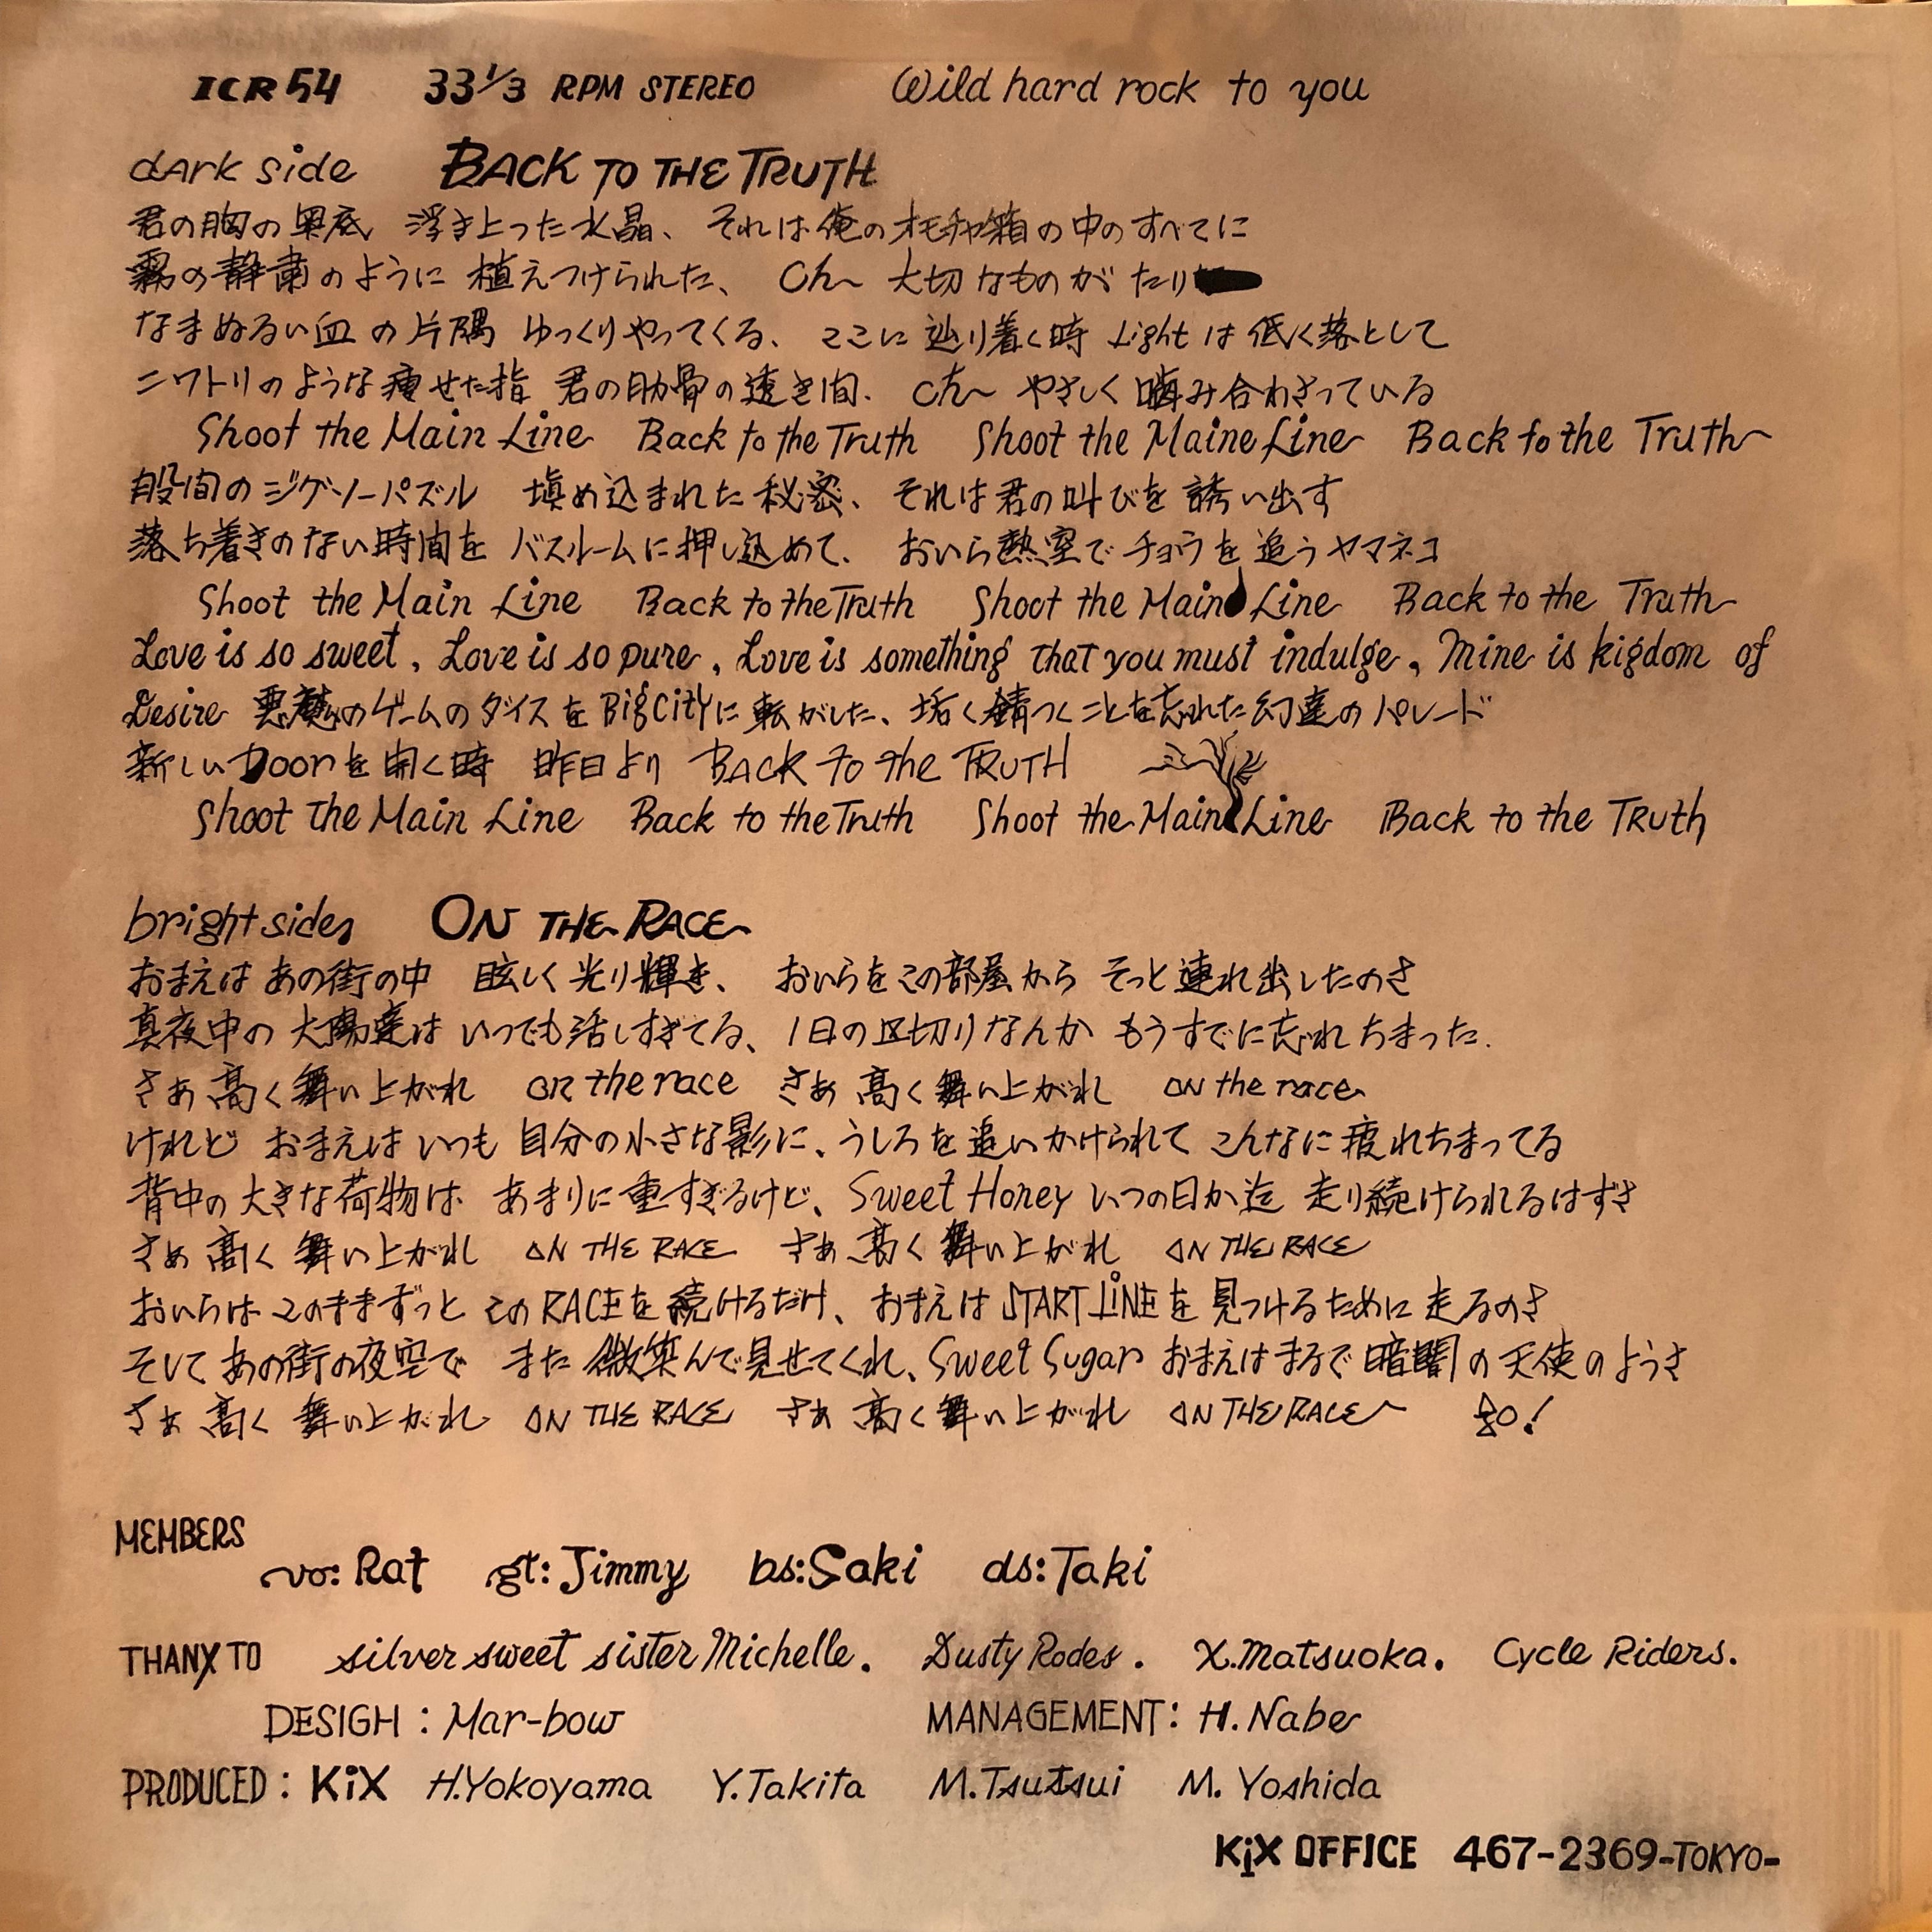 ICR 54 33 1/3 RPM STEREO Wild hard rock to you
dARk side BACK TO THE TRUTH
君の胸の奥底 浮き上った水晶、それは俺のオモチャ箱の中のすべてに
霧の静粛のように 植えつけられた、Ch〜 大切なものがたり
なまぬるい血の片隅 ゆっくりやってくる、ここに辿り着く時 Light は低く落として
ニワトリのような痩せた指 君の肋骨の透き間、Ch〜 やさしく噛み合わさっている
Shoot the Main Line Back to the Truth Shoot the Maine Line Back to the Truth
股間のジグソーパズル 填め込まれた秘密、それは君の叫びを誘い出す
落ち着きのない時間を バスルームに押し込めて、おいら熱室でチョウを追うヤマネコ
Shoot the Main Line Back to the Truth Shoot the Main Line Back to the Truth
Love is so sweet, Love is so pure, Love is something that you must indulge, Mine is kigdom of
Desire 悪魔のゲームのダイスを Big City に転がした、垢く錆つくことを忘れた幻達のパレード
新しい Door を開く時 昨日より BACK TO the TRUTH
Shoot the Main Line Back to the Truth Shoot the Main Line Back to the TRuth
bright side ON THE RACE
おまえは あの街の中 眩しく光り輝き、おいらをこの部屋から そっと連れ出したのさ
真夜中の太陽達は いつでも活しすぎてる、1日の区切りなんか もうすでに忘れちまった.
さあ高く舞い上がれ on the race さあ高く舞い上がれ ON the race
けれど おまえはいつも 自分の小さな影に、うしろを追いかけられて こんなに疲れちまってる
背中の大きな荷物は あまりに重すぎるけど、Sweet Honey いつの日か迄 走り続けられるはずさ
さあ高く舞い上がれ ON THE RACE さあ高く舞い上がれ ON THE RACE
おいらは このままずっと このRACEを続けるだけ、おまえは START LINE を見つけるために走るのさ
そして あの街の夜空で また微笑んで見せてくれ、Sweet Sugar おまえはまるで暗闇の天使のようさ
さあ高く舞い上がれ ON THE RACE さあ高く舞い上がれ ON THE RACE go!
MEMBERS
vo: Rat gt: Jimmy bs: Saki ds: Taki
THANX TO silver sweet sister Michelle. Dusty Rodes. X.Matsuoka. Cycle Riders.
DESIGH : Mar-bow MANAGEMENT: H. Nabe
PRODUCED : KiX H.Yokoyama Y.Takita M.Tsutsui M. Yoshida
KiX OFFICE 467-2369-TOKYO-